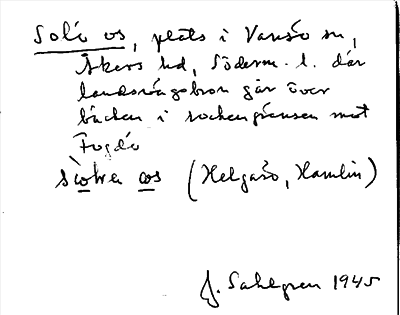 Solö os, plats i Vansö sn,
Åkers hd, Söderm. l. där
landsvägsbron går över
bäcken i sockengränsen mot
Fogdö
os (Helgarö, Hamlin)
J. Sahlgren 1945